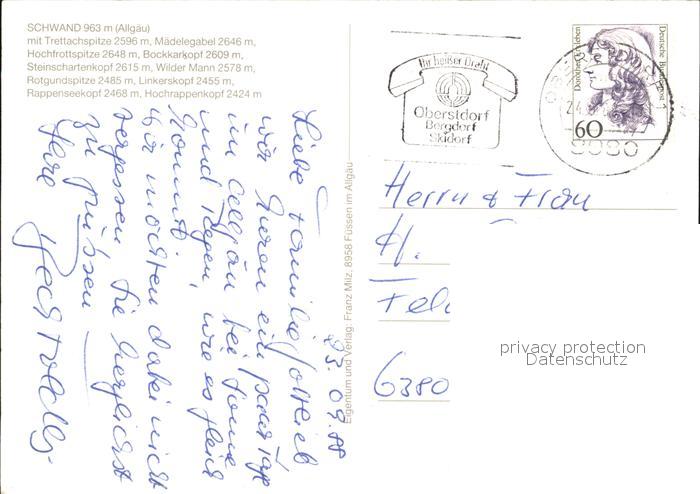 SCHWAND 963 m (Allgäu)
mit Trettachspitze 2596 m, Mädelegabel 2646 m,
Hochfrottspitze 2648 m, Bockkarkopf 2609 m,
Steinschartenkopf 2615 m, Wilder Mann 2578 m,
Rotgundspitze 2485 m, Linkerskopf 2455 m,
Rappenseekopf 2468 m, Hochrappenkopf 2424 m
23.09.88
Liebe Familie
wir waren ein paar Tage
im Allgäu bei Sonne
und Regen, wie es gleich
kommt.
Wir möchten dabei nicht
vergessen Sie herzlichst
zu grüßen
Ihre
Eigentum und Verlag: Franz Milz, 8958 Füssen im Allgäu
Ihr heißer Draht
Oberstdorf
Bergdorf
Skidorf
Dorothea Erxleben
Deutsche Bundespost
60
8980
Herrn & Frau
H.
6380
privacy protection
Datenschutz